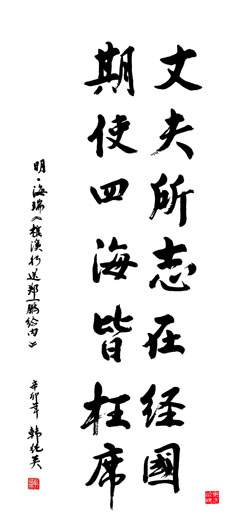 丈夫所志在经國
期使四海皆衽席
明·海瑞《樵溪行送郑一鹏给内》
辛卯年 韩 英